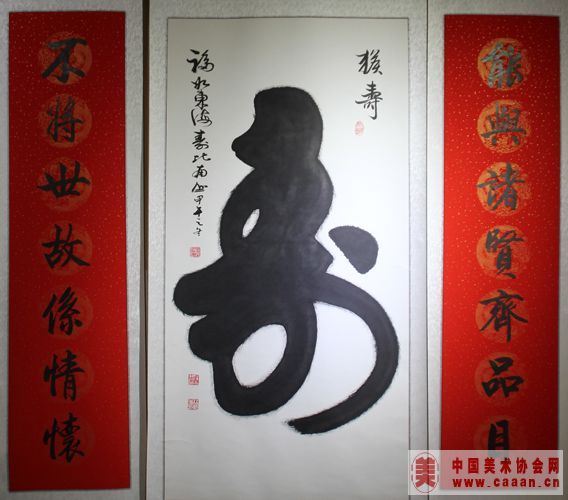 能與諸賢齊品目
猴壽
壽
福如東海壽比南山甲午之冬
不將世故係情懷
美
中国美术协会网
www.caaan.cn